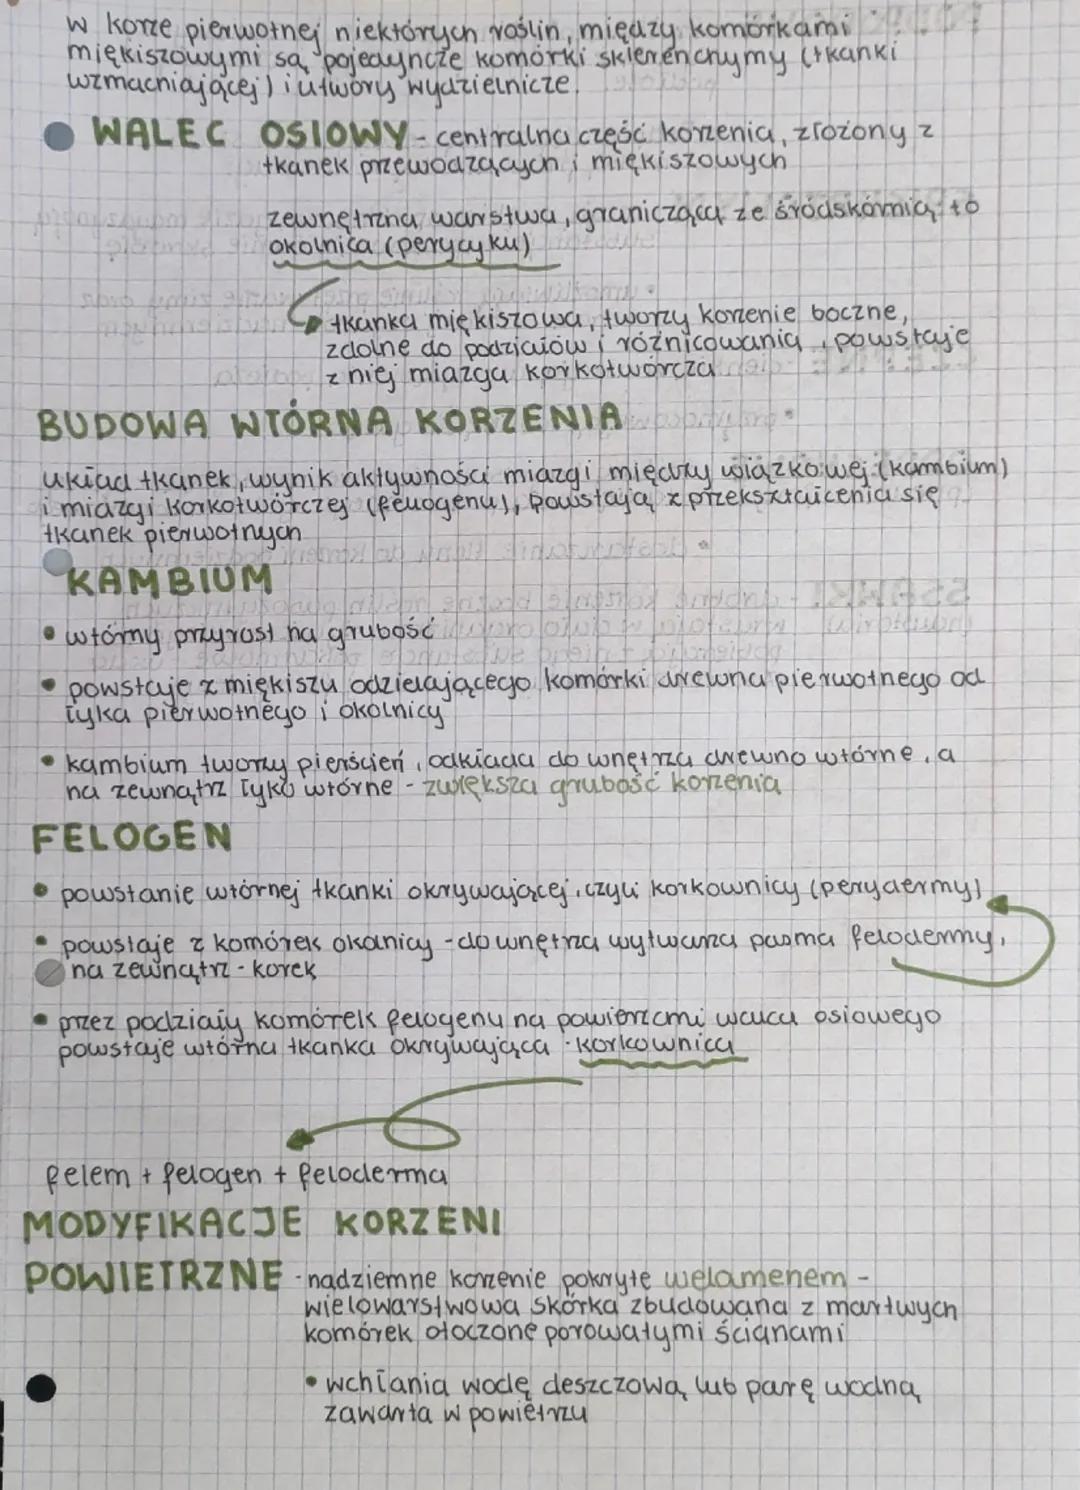 w korze pierwotnej niektórych roślin, między komórkami
miękiszowymi są pojedyncze komórki sklerenchymy (tkanki
wzmacniającej) i utwory wydzielnicze.
WALEC OSIOWY - centralna część korzenia, złożony z
tkanek przewodzących i miękiszowych
zewnętrzna warstwa, graniczącą ze śródskórnią to
okolnica (perycyku)
tkanka miękiszowa, tworzy korzenie boczne,
zdolne do podziałów i różnicowania, powstaje
z niej miazga korkotwórcza
BUDOWA WTÓRNA KORZENIA
układ tkanek, wynik aktywności miazgi między wiązkowej (kambium)
i miazgi korkotwórczej (felogenu), powstają z przekształcenia się
tkanek pierwotnych
KAMBIUM
• wtórny przyrost na grubość
• powstaje z miękiszu odzielającego komórki drewna pierwotnego od
łyka pierwotnego i okolnicy
• kambium tworzy pierścień, odkłada do wnętrza drewno wtórne, a
na zewnątrz łyko wtórne - zwiększa grubość korzenia
FELOGEN
• powstanie wtórnej tkanki okrywającej, czyli korkownicy (perydermy)
• powstaje z komórek okolnicy - do wnętrza wytwarza pasma felodermy,
na zewnątrz - korek
• przez podziały komórek felogenu na powierzchni walca osiowego
powstaje wtórna tkanka okrywająca - korkownica
felem + felogen + feloderma
MODYFIKACJE KORZENI
POWIETRZNE - nadziemne korzenie pokryte welamenem -
wielowarstwowa skórka zbudowana z martwych
komórek otoczone porowatymi ścianami
• wchłania wodę deszczową lub parę wodną
zawarta w powietrzu